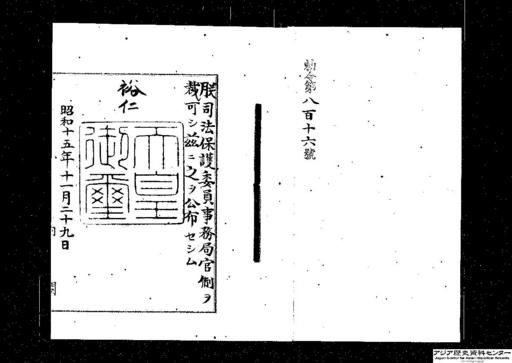 勅令第八百十六號
朕司法保護委員事務局官制ヲ
裁可シ茲ニ之ヲ公布セシム
裕仁
天皇御璽
昭和十五年十一月二十九日
内閣
アジア歴史資料センター
Japan Center for Asian Historical Records